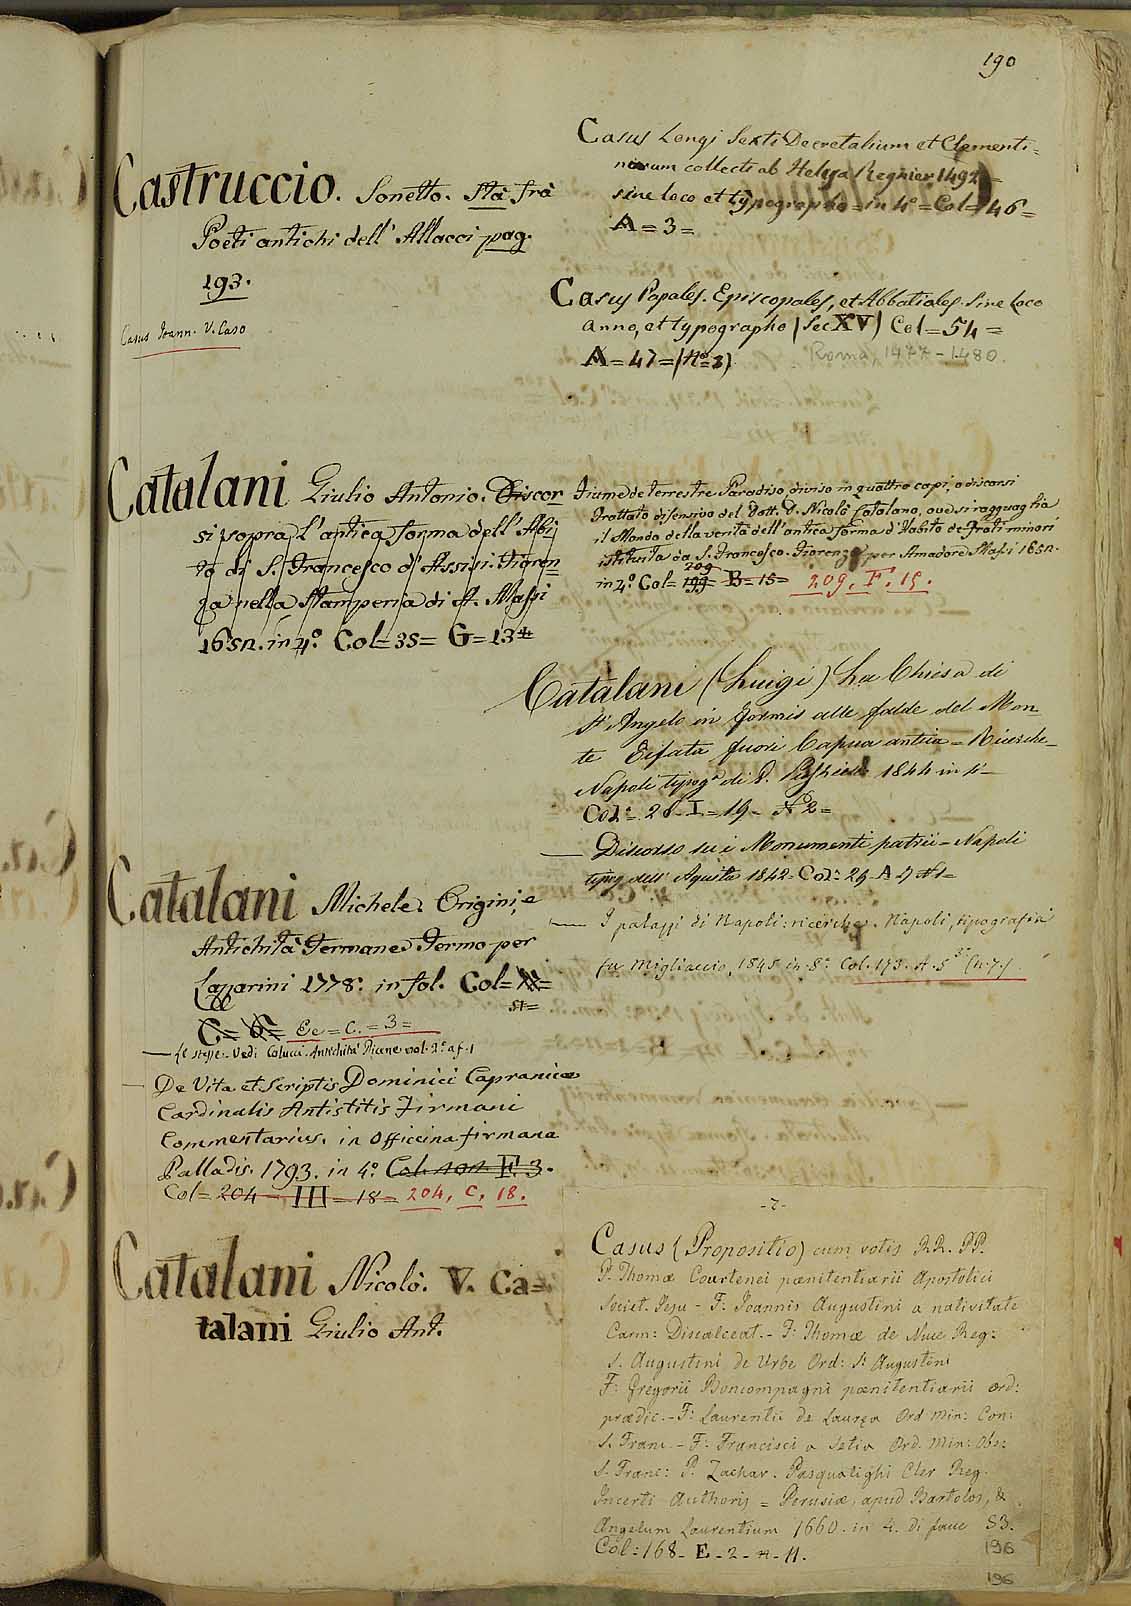 190
Castruccio. Sonetto. Stà frà
Poeti antichi dell' Allacci pag.
193.
Casus Joann. V. Caso
Catalani Giulio Antonio. Discor-
si sopra l'antica forma dell' Abi
to di S. Francesco d'Assisi. Fioren-
za nella Stamperia di A. Massi
1652. in 4.º Col=35= G=13=
Catalani Michele. Origini, e
Antichità Fermane. Fermo per
Lazzarini 1778. in fol. Col=
51=
C= 6= Ee=C.=3=
— Le stesse. Vedi Colucci. Antichità Picene vol. 2.º a f. 1
— De Vita et Scriptis Dominici Capranicæ
Cardinalis Antistitis Firmani
Commentarius. in Officina firmana
Palladis. 1793. in 4.º Col. F. 3.
Col=204= III=18= 204, C, 18.
Catalani Nicolò. V. Ca=
talani Giulio Ant.
Casus Longi Sexti Decretalium et Clementi=
narum collecti ab Helya Regnier 1492=
sine loco et typographo=in 4.º=Col=46=
A=3=
Casus Papales. Episcopales, et Abbatiales. Sine loco
anno, et typographo (Sec XV) Col=54=
A=47=(Nº=3)
Roma, 1477-1480.
Fiume de terrestre Paradiso, diviso in quattro capi, o discorsi
Trattato difensivo del Dott. D. Nicolò Catalano, ove si ragguaglia
il Mondo della verità dell' antica forma d'Habito de Frati minori
istituita da S. Francesco. Fiorenza per Amadore Massi 1652.
209
in 4.º Col= 199= B=15= 209. F. 15.
Catalani (Luigi) La Chiesa di
S. Angelo in formis alle falde del Mon-
te Tifata fuori Capua antica = Ricerche_
Napoli tipog.ª di 1844 in 4-
Col.= 28-I=19- Nº 2=
— Discorso su i Monumenti patrii = Napoli
tipog dell' Aquila 1842. Col: 29-A-
— I palazzi di Napoli: ricerche. Napoli, tipografia
fu Migliaccio, 1845 in-8.º Col. 173. A. 5 (n.7.)
-2-
Casus (Propositio) cum votis RR. PP.
P. Thomæ Courtenei pænitentiarii Apostolici
Societ. Jesu - F. Joannis Augustini a nativitate
Carm: Discalceat.- F: Thomæ de Reg:
S. Augustini de Urbe Ord: S: Augustini
F: Gregorii Boncompagni pænitentiarii ord:
prædic.-F: Laurentii de Ord Min: Con:
S. Franc.- F: Francisci a Setia Ord. Min: Obs:
S. Franc: P. Zachar. Pasqualighi Cler Reg.
Incerti Authoris = Perusiæ, apud Bartolos, &
Angelum Laurentium 1660. in 4. di facce 83.
Col:168- E-2-n-11.
196
196